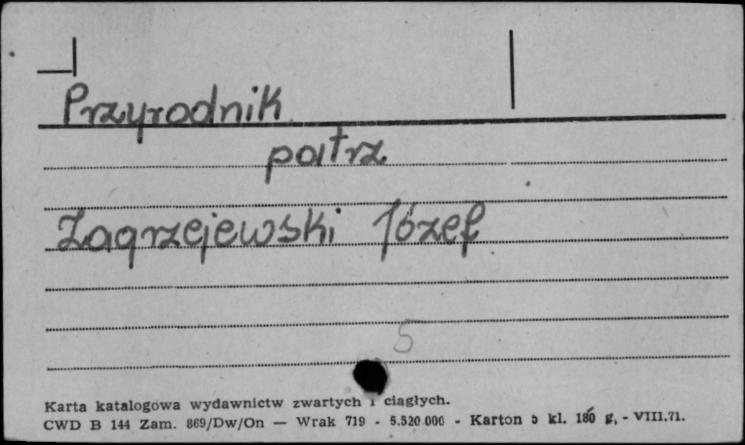 Przyrodnik
patrz
Zagrzejewski Józef
5
Karta katalogowa wydawnictw zwartych i ciągłych.
CWD B 144 Zam. 869/Dw/On — Wrak 719 - 5.520.000 - Karton 5 kl. 180 g, - VIII.71.